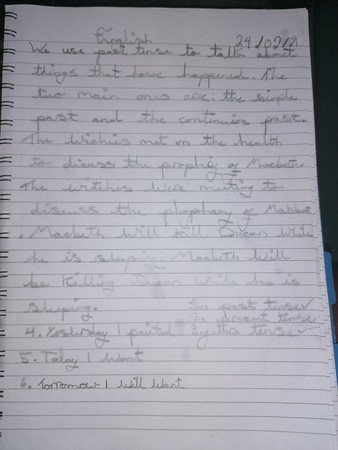 English 24/02/21
We use past tense to talk about
things that have happened. The
two main ones are: the simple
past and the continuios past.
The wichis met on the health
to discuss the prophcy of Macbeth.
The witches were meeting to
discuss the of Macbeth
. Macbeth will kill while
he is sleeping. Macbeth will
be killing while he is
sleeping. 1. past tense ✓
2. present tense ✓
4. Yesterday I painted 3. tense ✓
5. Today I want
6. Torromow I will want